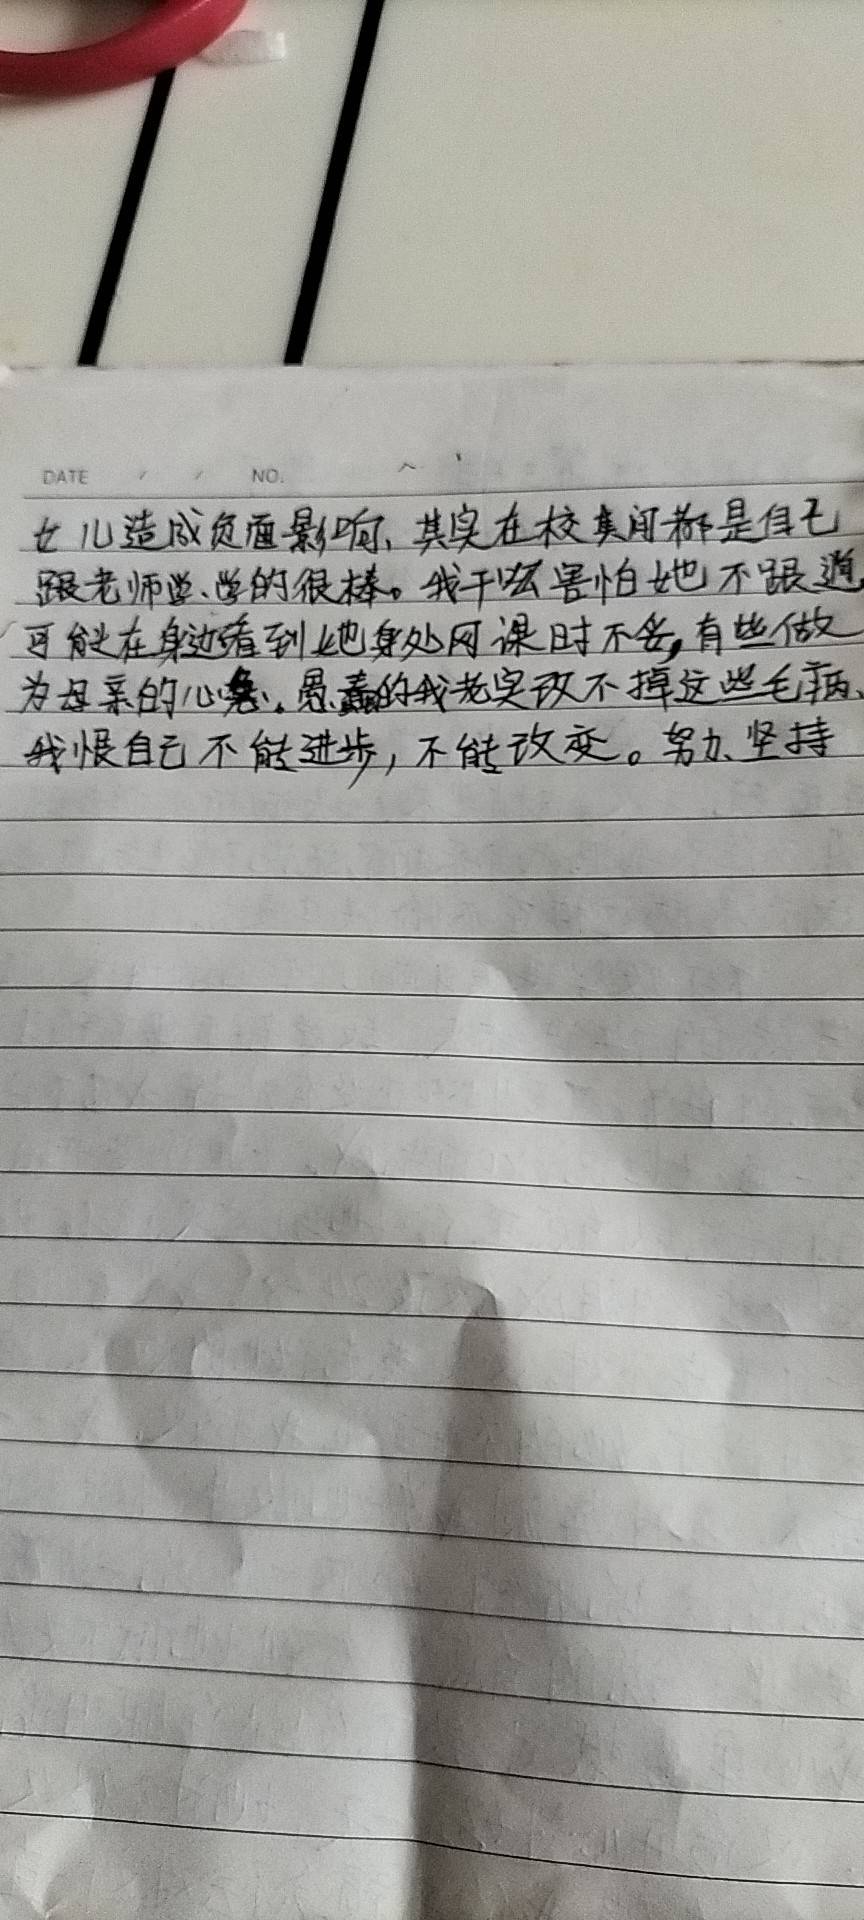 DATE / / NO.
女儿造成负面影响、其实在校其间都是自己
跟老师学、学的很棒。我干嘛害怕她不跟趟
可能在身边看到她身处网课时不会,有些做
为母亲的心急。愚蠢的我老实改不掉这些毛病、
我恨自己不能进步,不能改变。努力、坚持